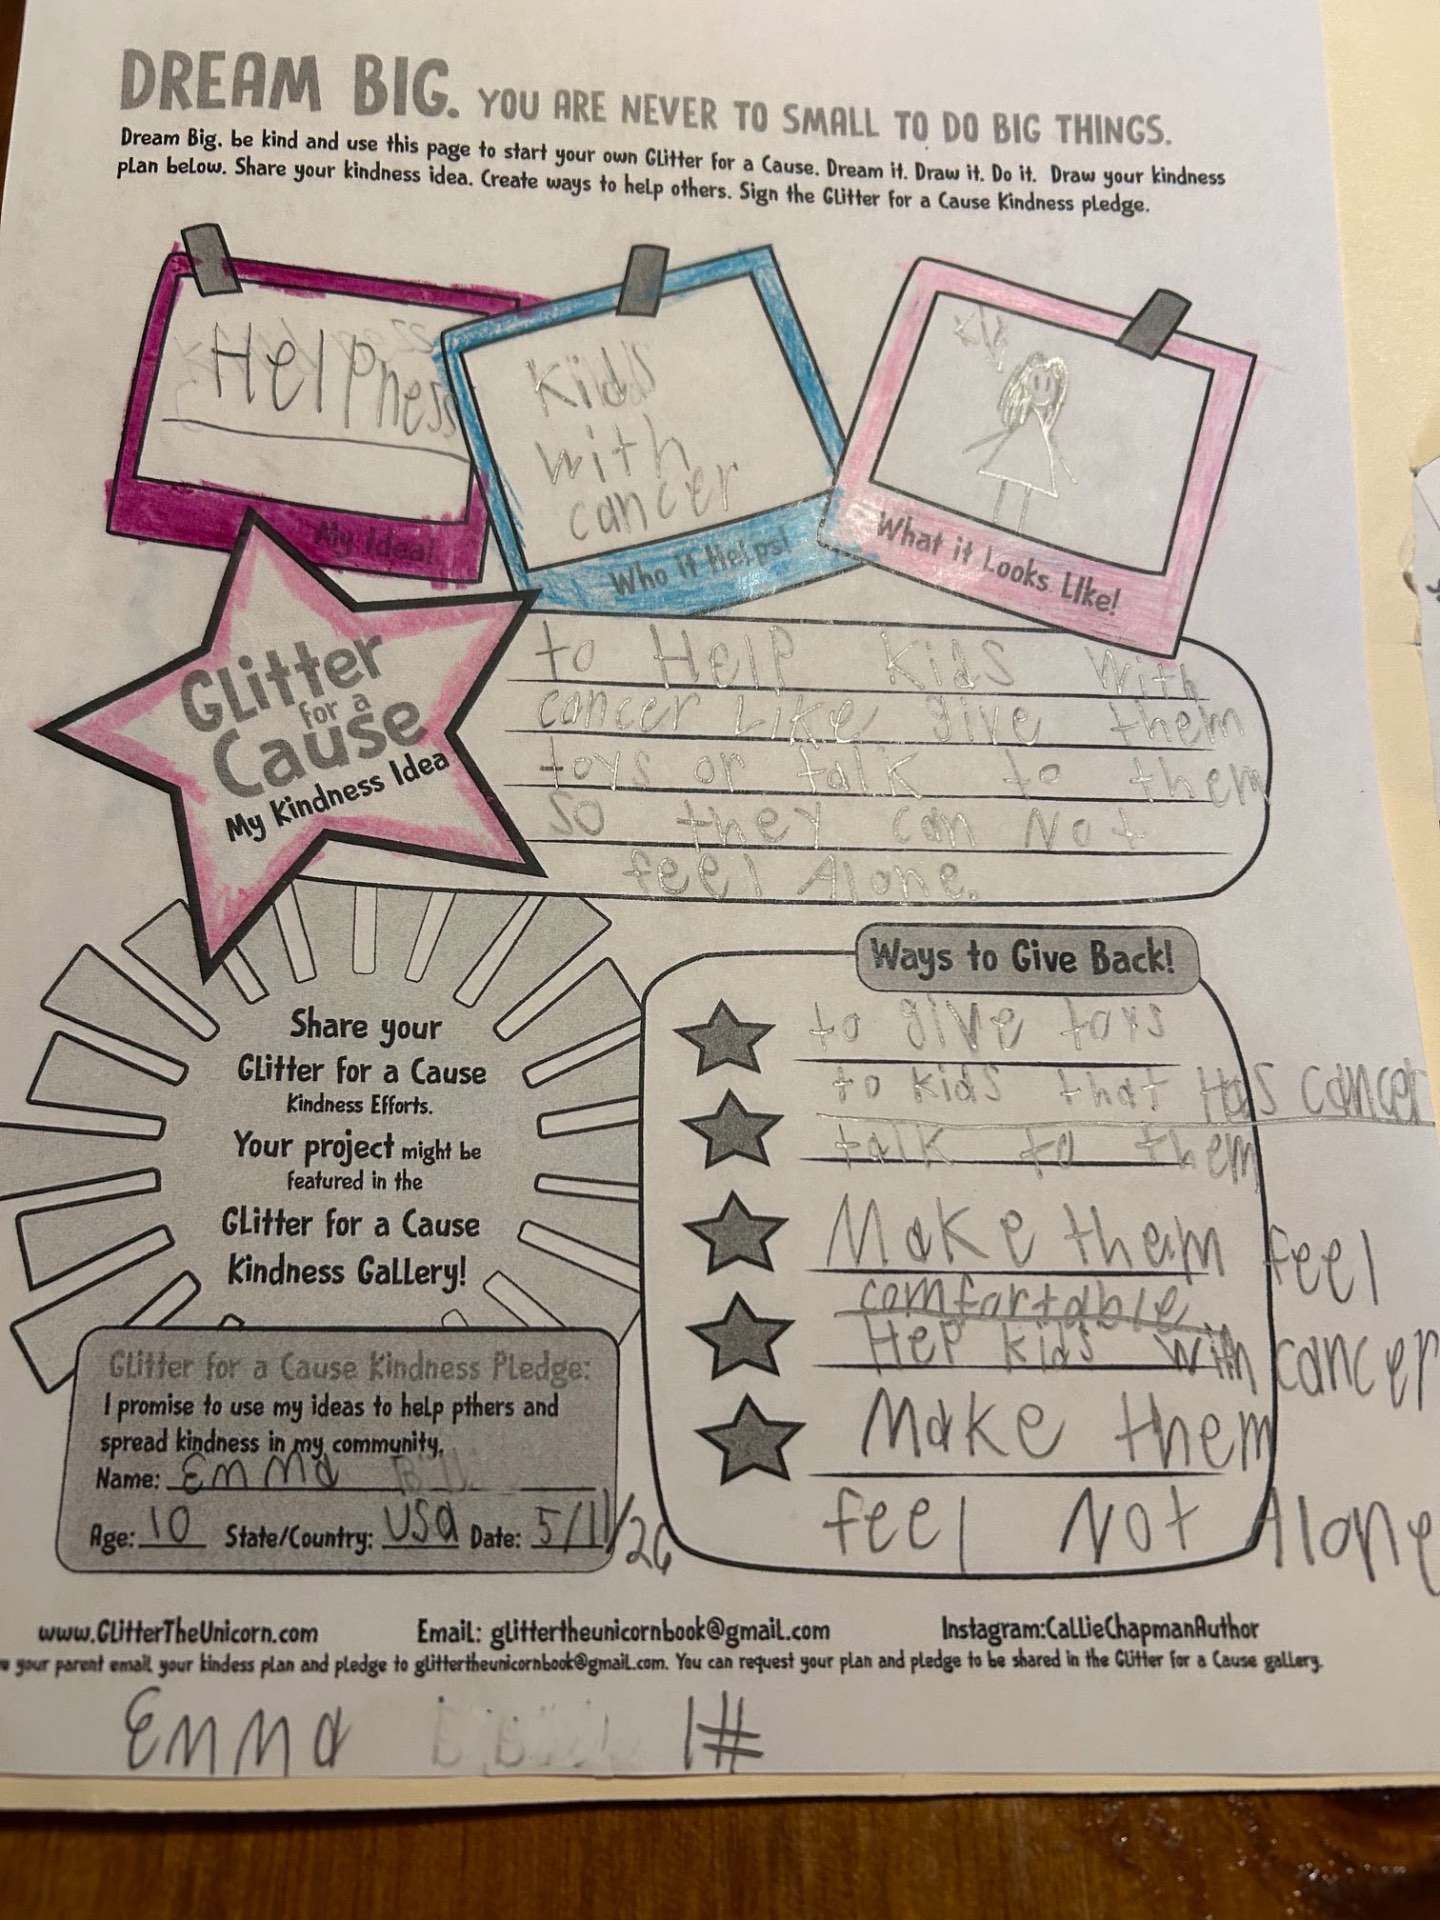 DREAM BIG. YOU ARE NEVER TO SMALL TO DO BIG THINGS.
Dream Big, be kind and use this page to start your own Glitter for a Cause. Dream it. Draw it. Do it. Draw your kindness
plan below. Share your kindness idea. Create ways to help others. Sign the Glitter for a Cause Kindness pledge.
HelPness
My Idea!
Kids
with
cancer
Who it Helps!
Kid
What it Looks Like!
Glitter
for a
Cause
My Kindness Idea
to HelP Kids with
cancer Like give them
toys or talk to them
so they can Not
feel Alone.
Share your
Glitter for a Cause
Kindness Efforts.
Your project might be
featured in the
Glitter for a Cause
Kindness Gallery!
Ways to Give Back!
to give toys
to kids that Has cancer
talk to them
Make them feel
comfortable
Hep kids with cancer
Make them
feel Not Alone
Glitter for a Cause Kindness Pledge:
I promise to use my ideas to help pthers and
spread kindness in my community.
Name: Emma
Age: 10 State/Country: USa Date: 5/11/26
www.GlitterTheUnicorn.com Email: glittertheunicornbook@gmail.com Instagram:CallieChapmanAuthor
your parent email your kindess plan and pledge to glittertheunicornbook@gmail.com. You can request your plan and pledge to be shared in the Glitter for a Cause gallery.
Emma 1#